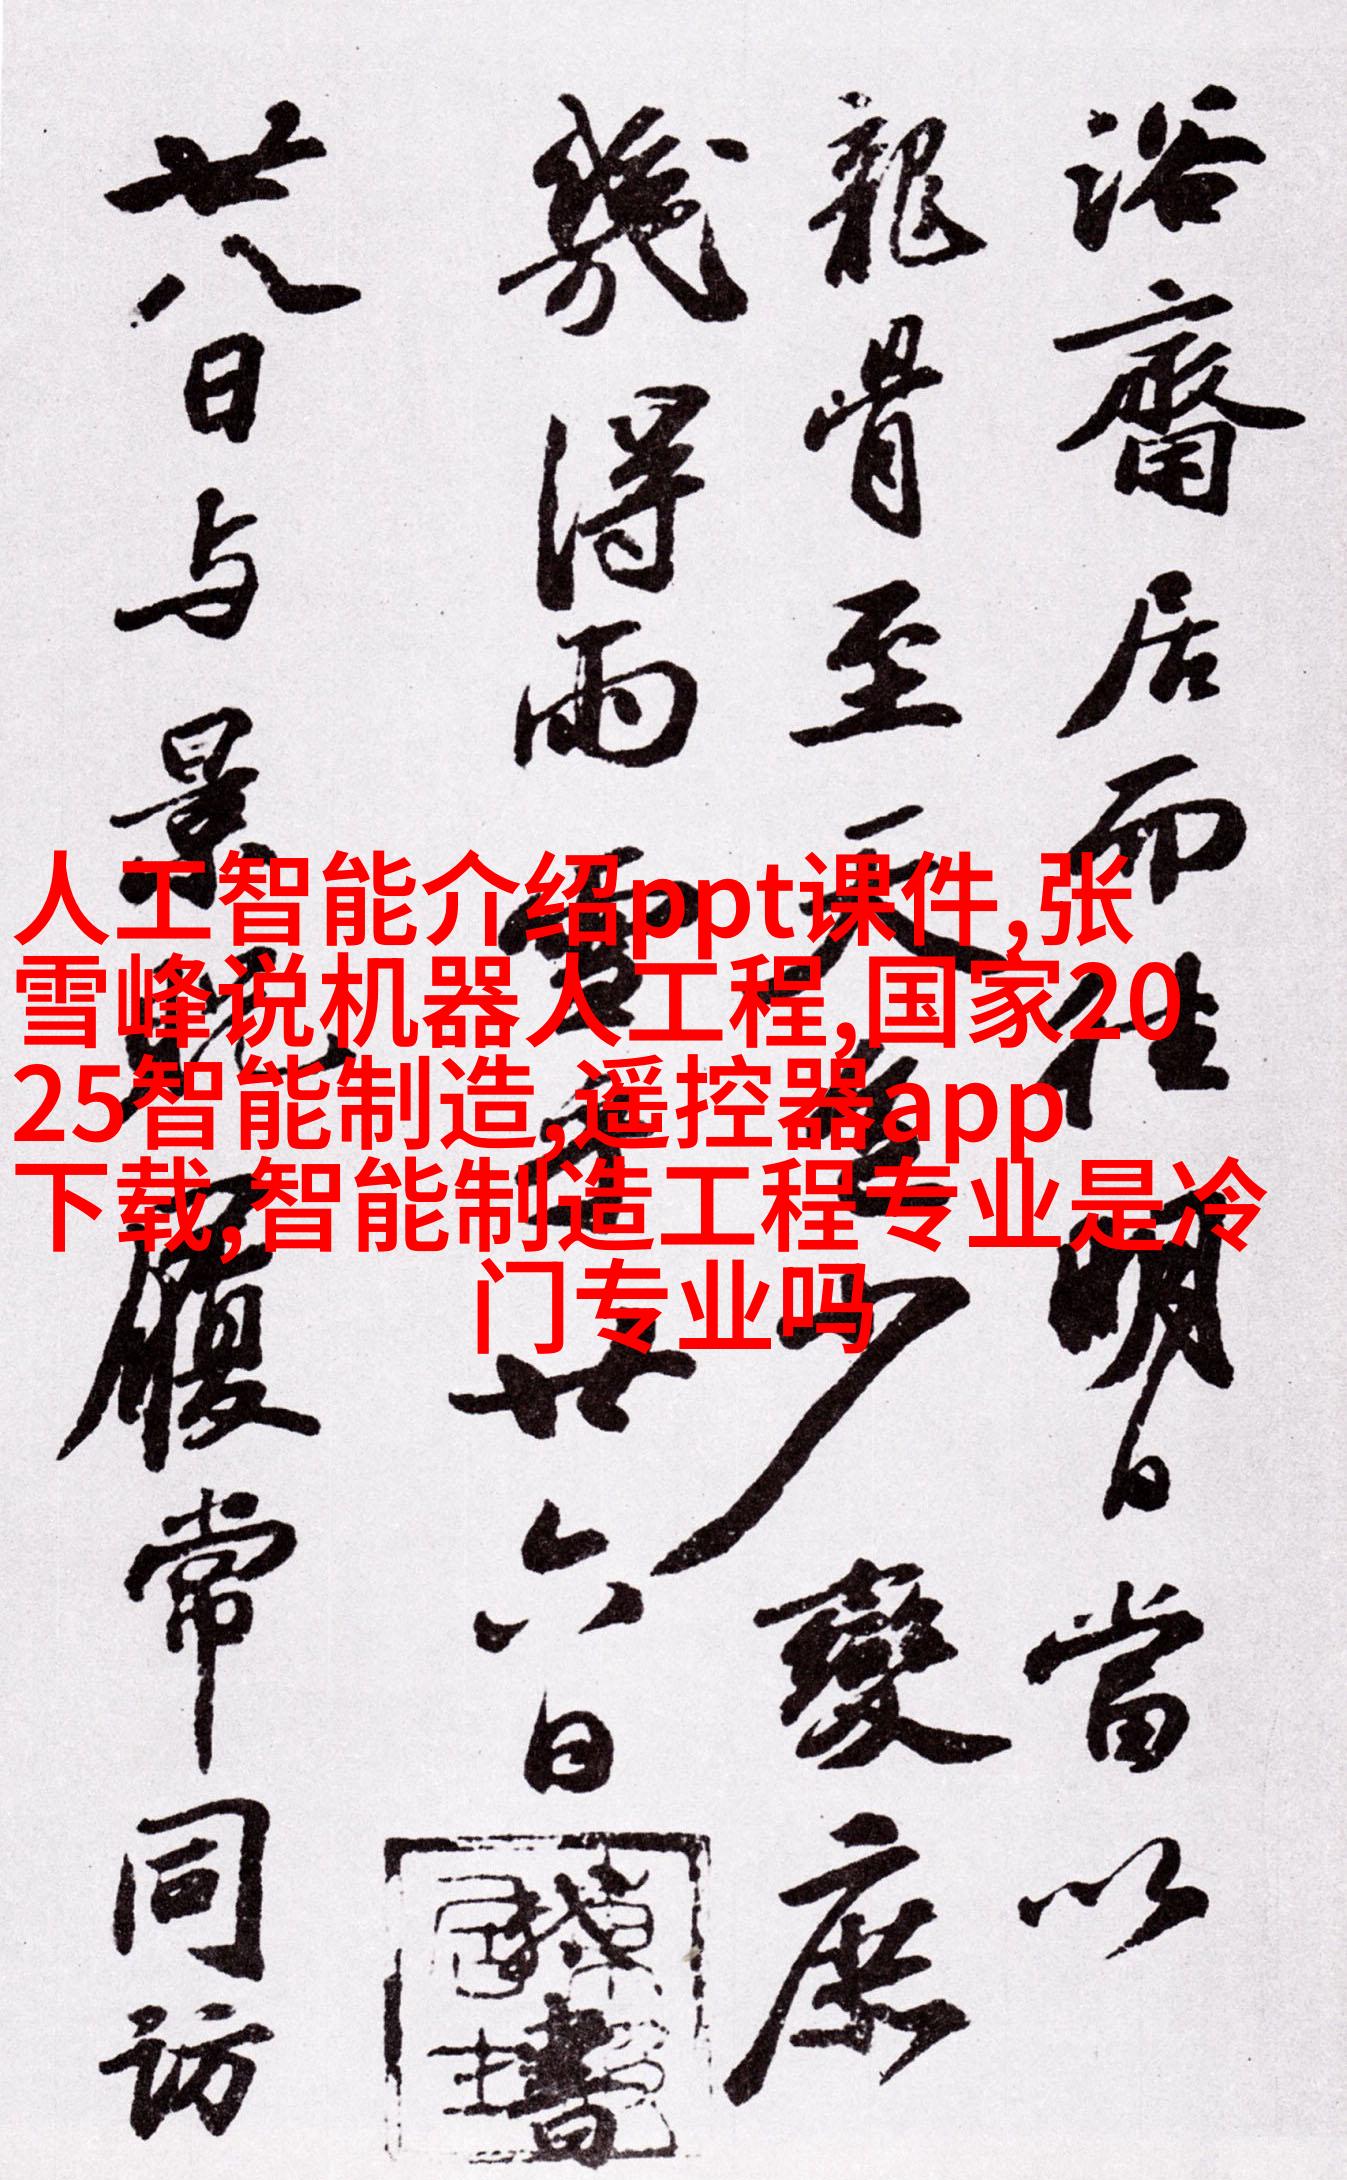 浴齋居而往明日當以
龍骨至天章少變庶
幾得雨雪霑廿六日
書
廿八日与景貺履常同訪
人工智能介绍ppt课件,张
雪峰说机器人工程,国家20
25智能制造,遥控器app
下载,智能制造工程专业是冷
门专业吗